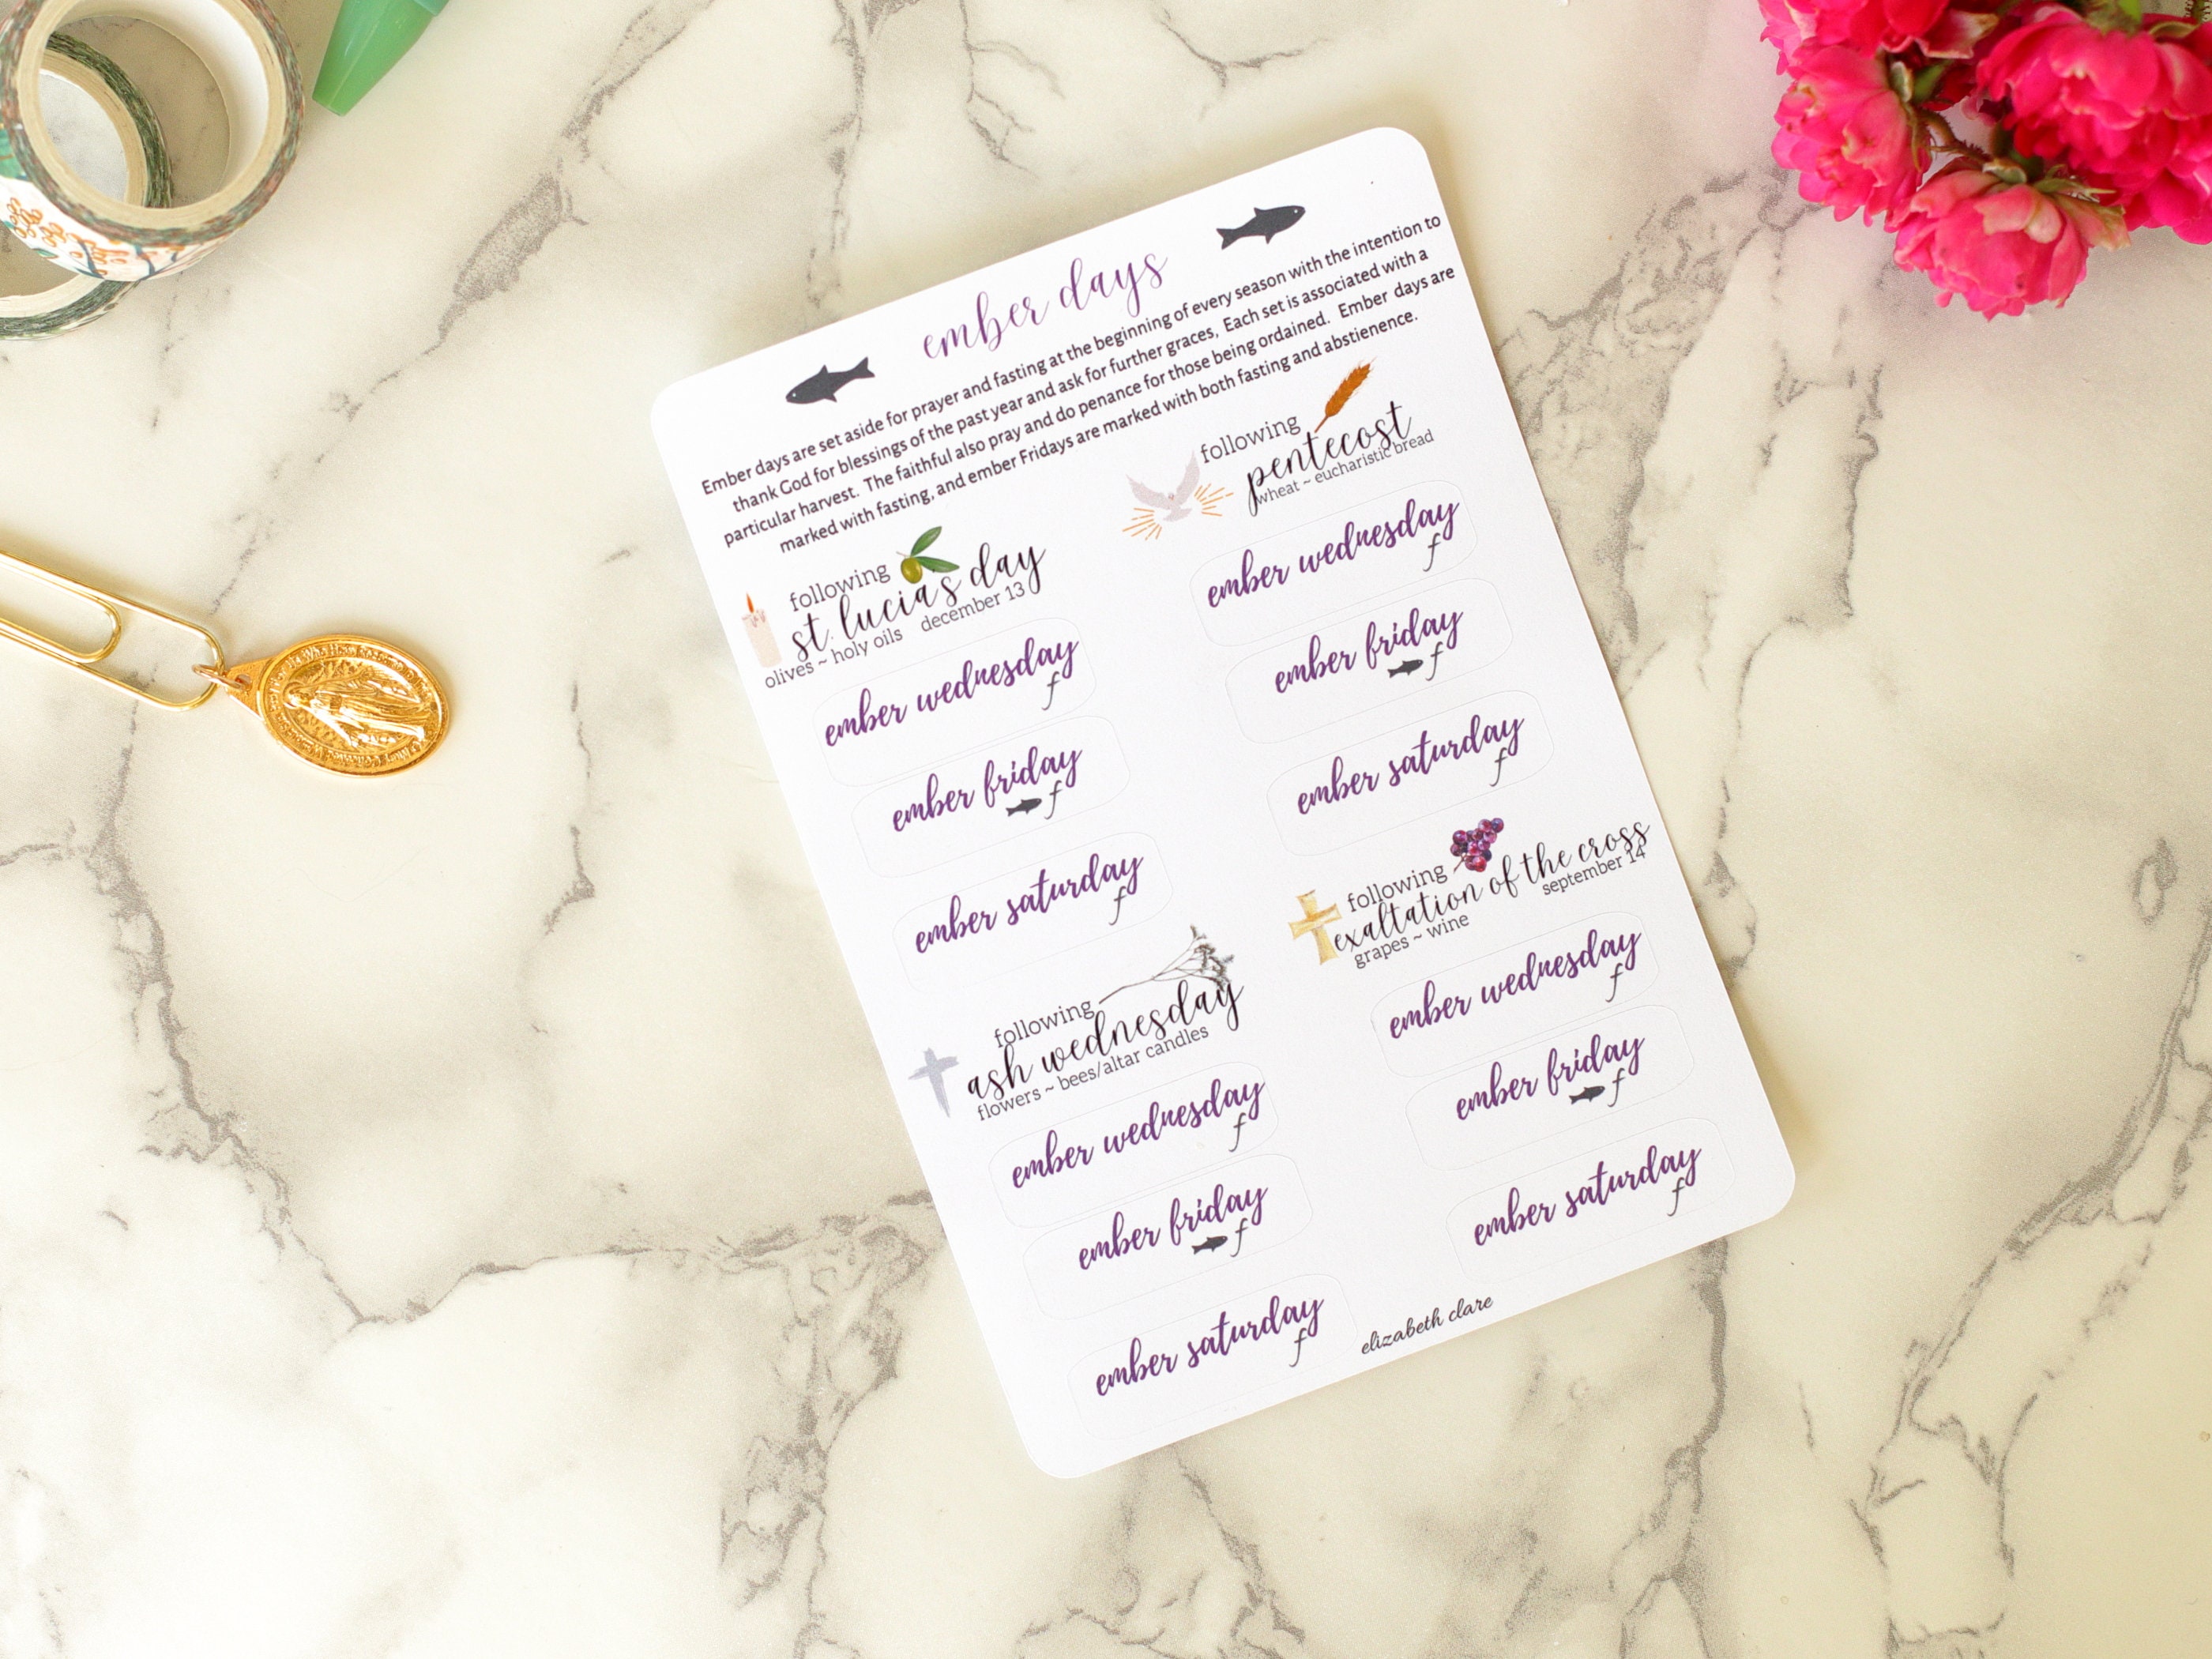 ember days
Ember days are set aside for prayer and fasting at the beginning of every season with the intention to
thank God for blessings of the past year and ask for further graces, Each set is associated with a
particular harvest. The faithful also pray and do penance for those being ordained. Ember days are
marked with fasting, and ember Fridays are marked with both fasting and abstienence.
following
st. lucia's day
olives ~ holy oils december 13
ember wednesday
f
ember friday
f
ember saturday
f
following
ash wednesday
flowers ~ bees/altar candles
ember wednesday
f
ember friday
f
ember saturday
f
following
pentecost
wheat ~ eucharistic bread
ember wednesday
f
ember friday
f
ember saturday
f
following
exaltation of the cross
september 14
grapes ~ wine
ember wednesday
f
ember friday
f
ember saturday
f
elizabeth clare